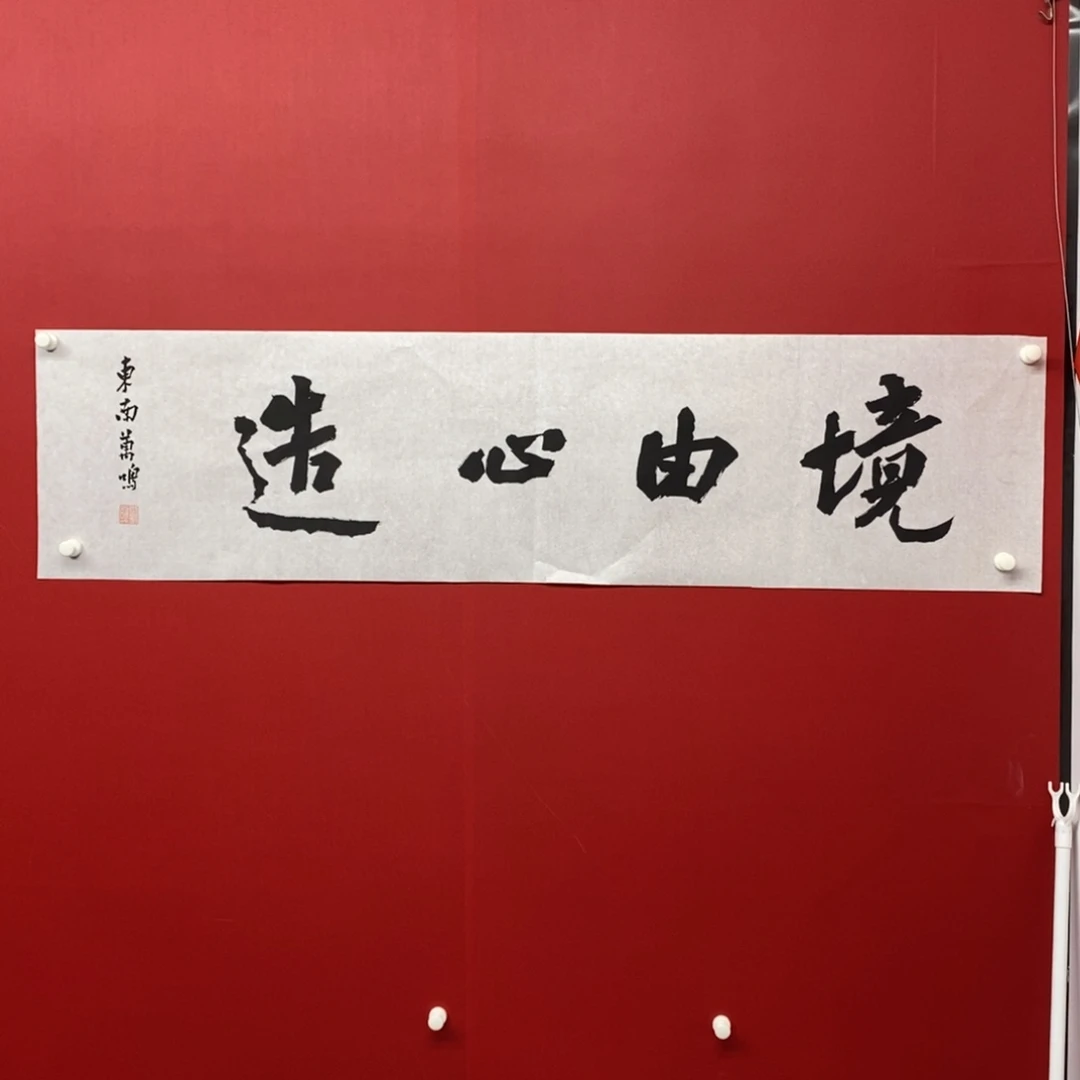 境由心造
東南萬鳴